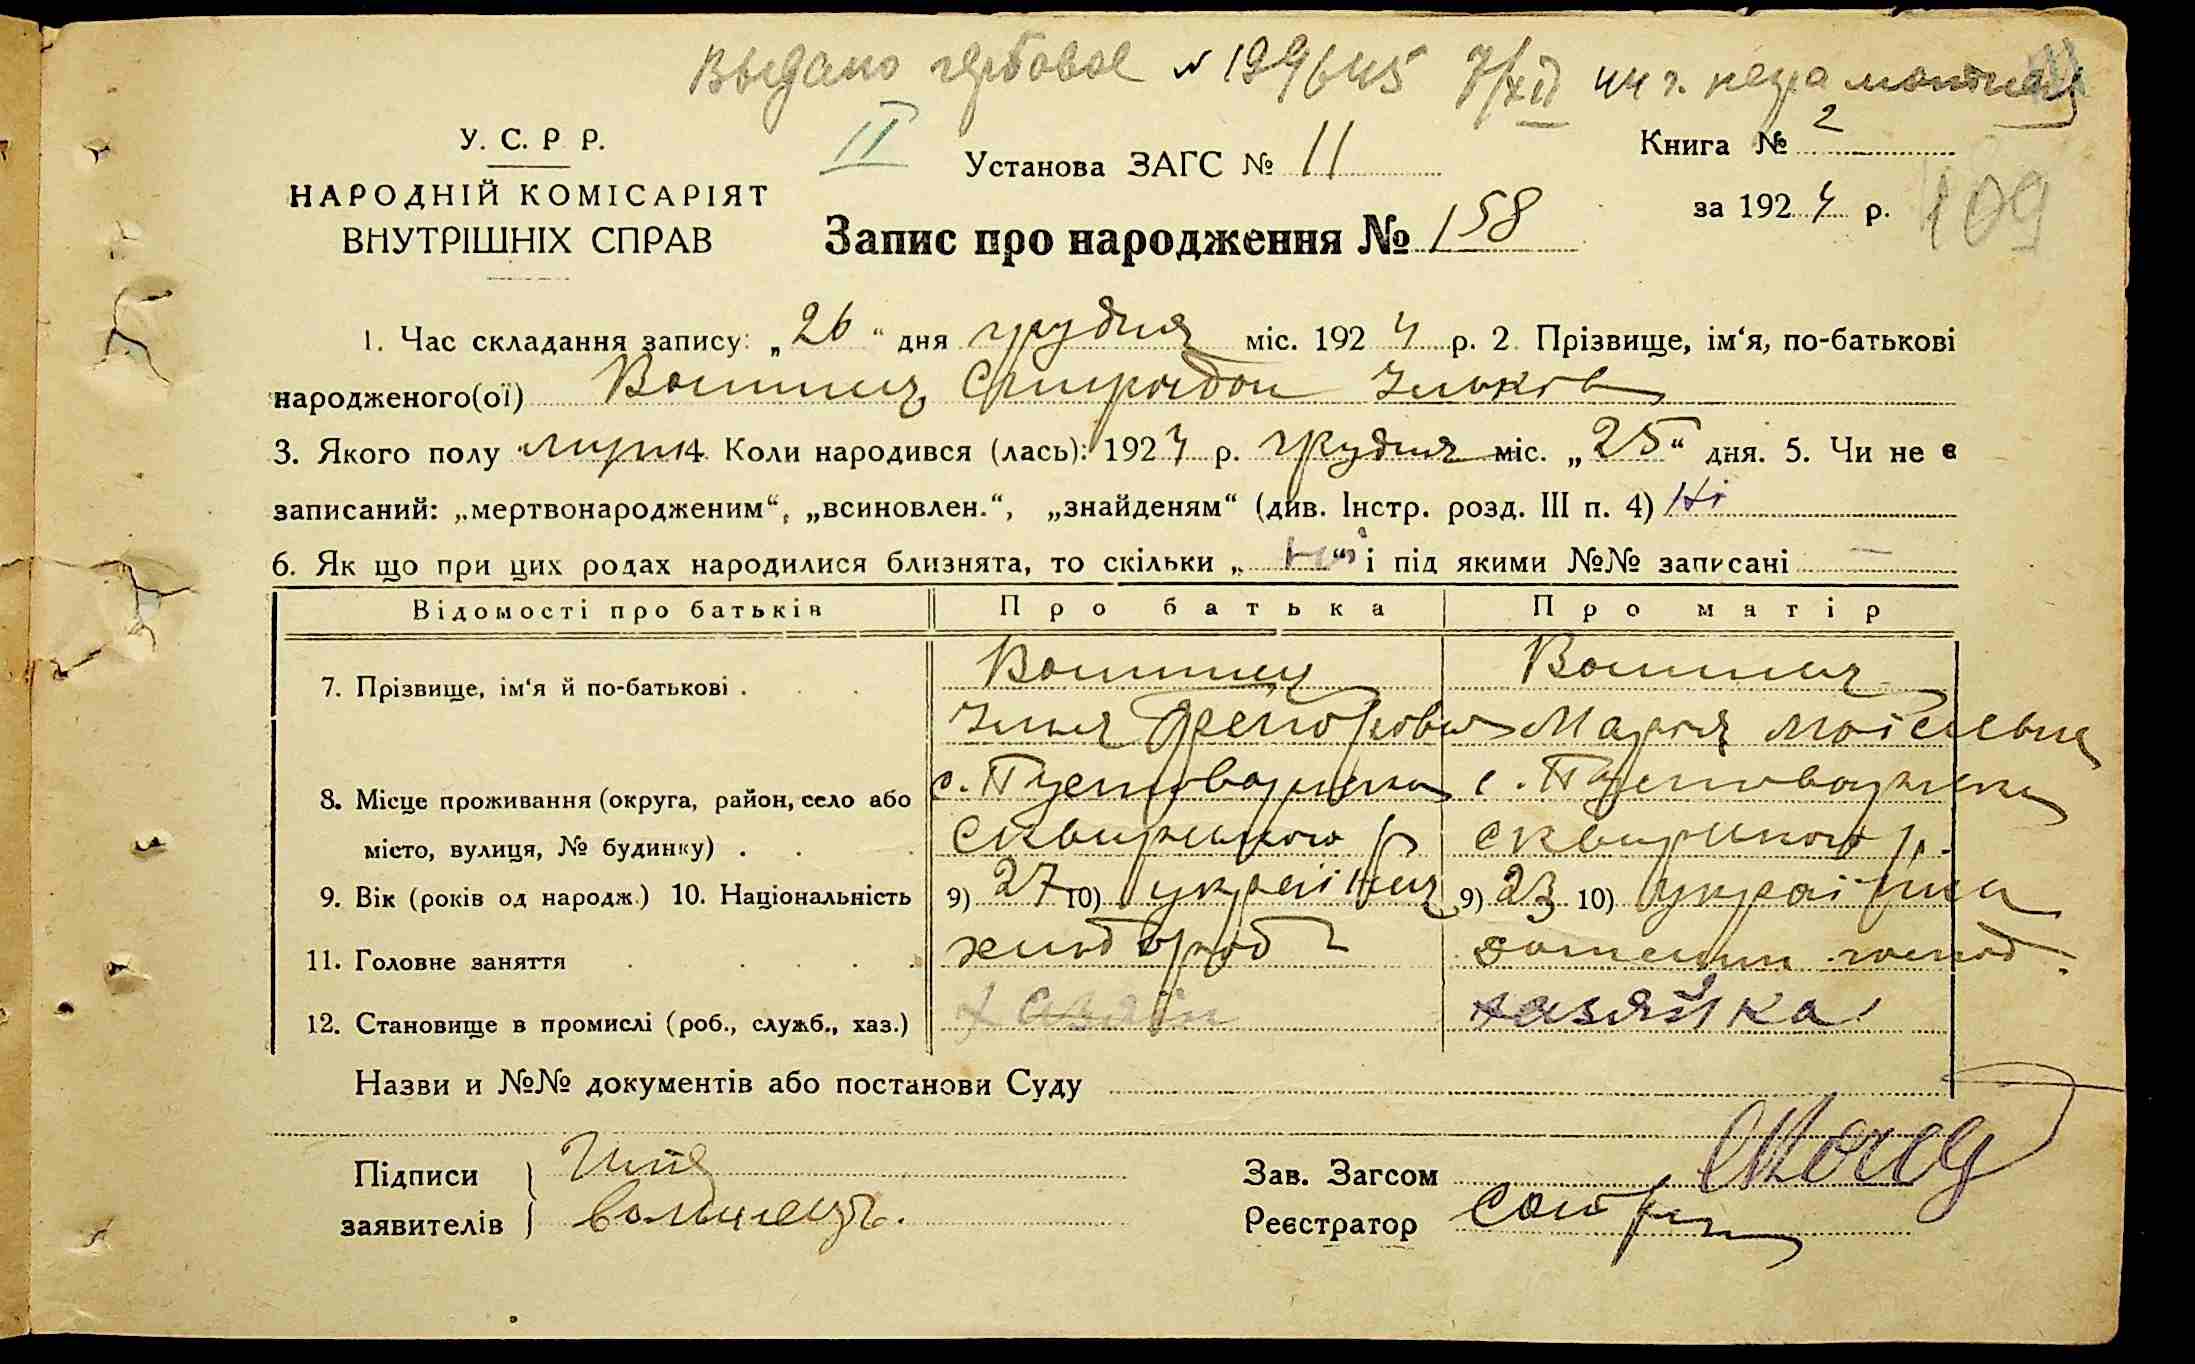 Выдано гербовое № 199645 7/XII 44 г.
У. С. Р. Р.
НАРОДНІЙ КОМІСАРІЯТ
ВНУТРІШНІХ СПРАВ
II
Установа ЗАГС № 11
Книга № 2
за 1924 р.
109
Запис про народження № 158
1. Час складання запису: „26“ дня грудня міс. 1924 р. 2. Прізвище, ім‘я, по-батькові
народженого(ої) Спиридон Ільків
3. Якого полу 4. Коли народився (лась): 1924 р. грудня міс. „25“ дня. 5. Чи не є
записаний: „мертвонародженим“, „всиновлен.“, „знайденям“ (див. Інстр. розд. III п. 4) Ні
6. Як що при цих родах народилися близнята, то скільки „ні“ і під якими №№ записані —
Відомості про батьків Про батька Про матір
7. Прізвище, ім‘я й по-батькові
Марія Моісеевна
8. Місце проживання (округа, район, село або с. Пустоварівка с. Пустоварівка
місто, вулиця, № будинку) Сквирського р. Сквирського р.
9. Вік (років од народж.) 10. Національність 9) 27 10) україн 9) 23 10) україн
11. Головне заняття хлібороб
12. Становище в промислі (роб., служб., хаз.) хазяїн хазяйка
Назви и №№ документів або постанови Суду
Підписи
заявителів Волынецъ.
Зав. Загсом
Реєстратор